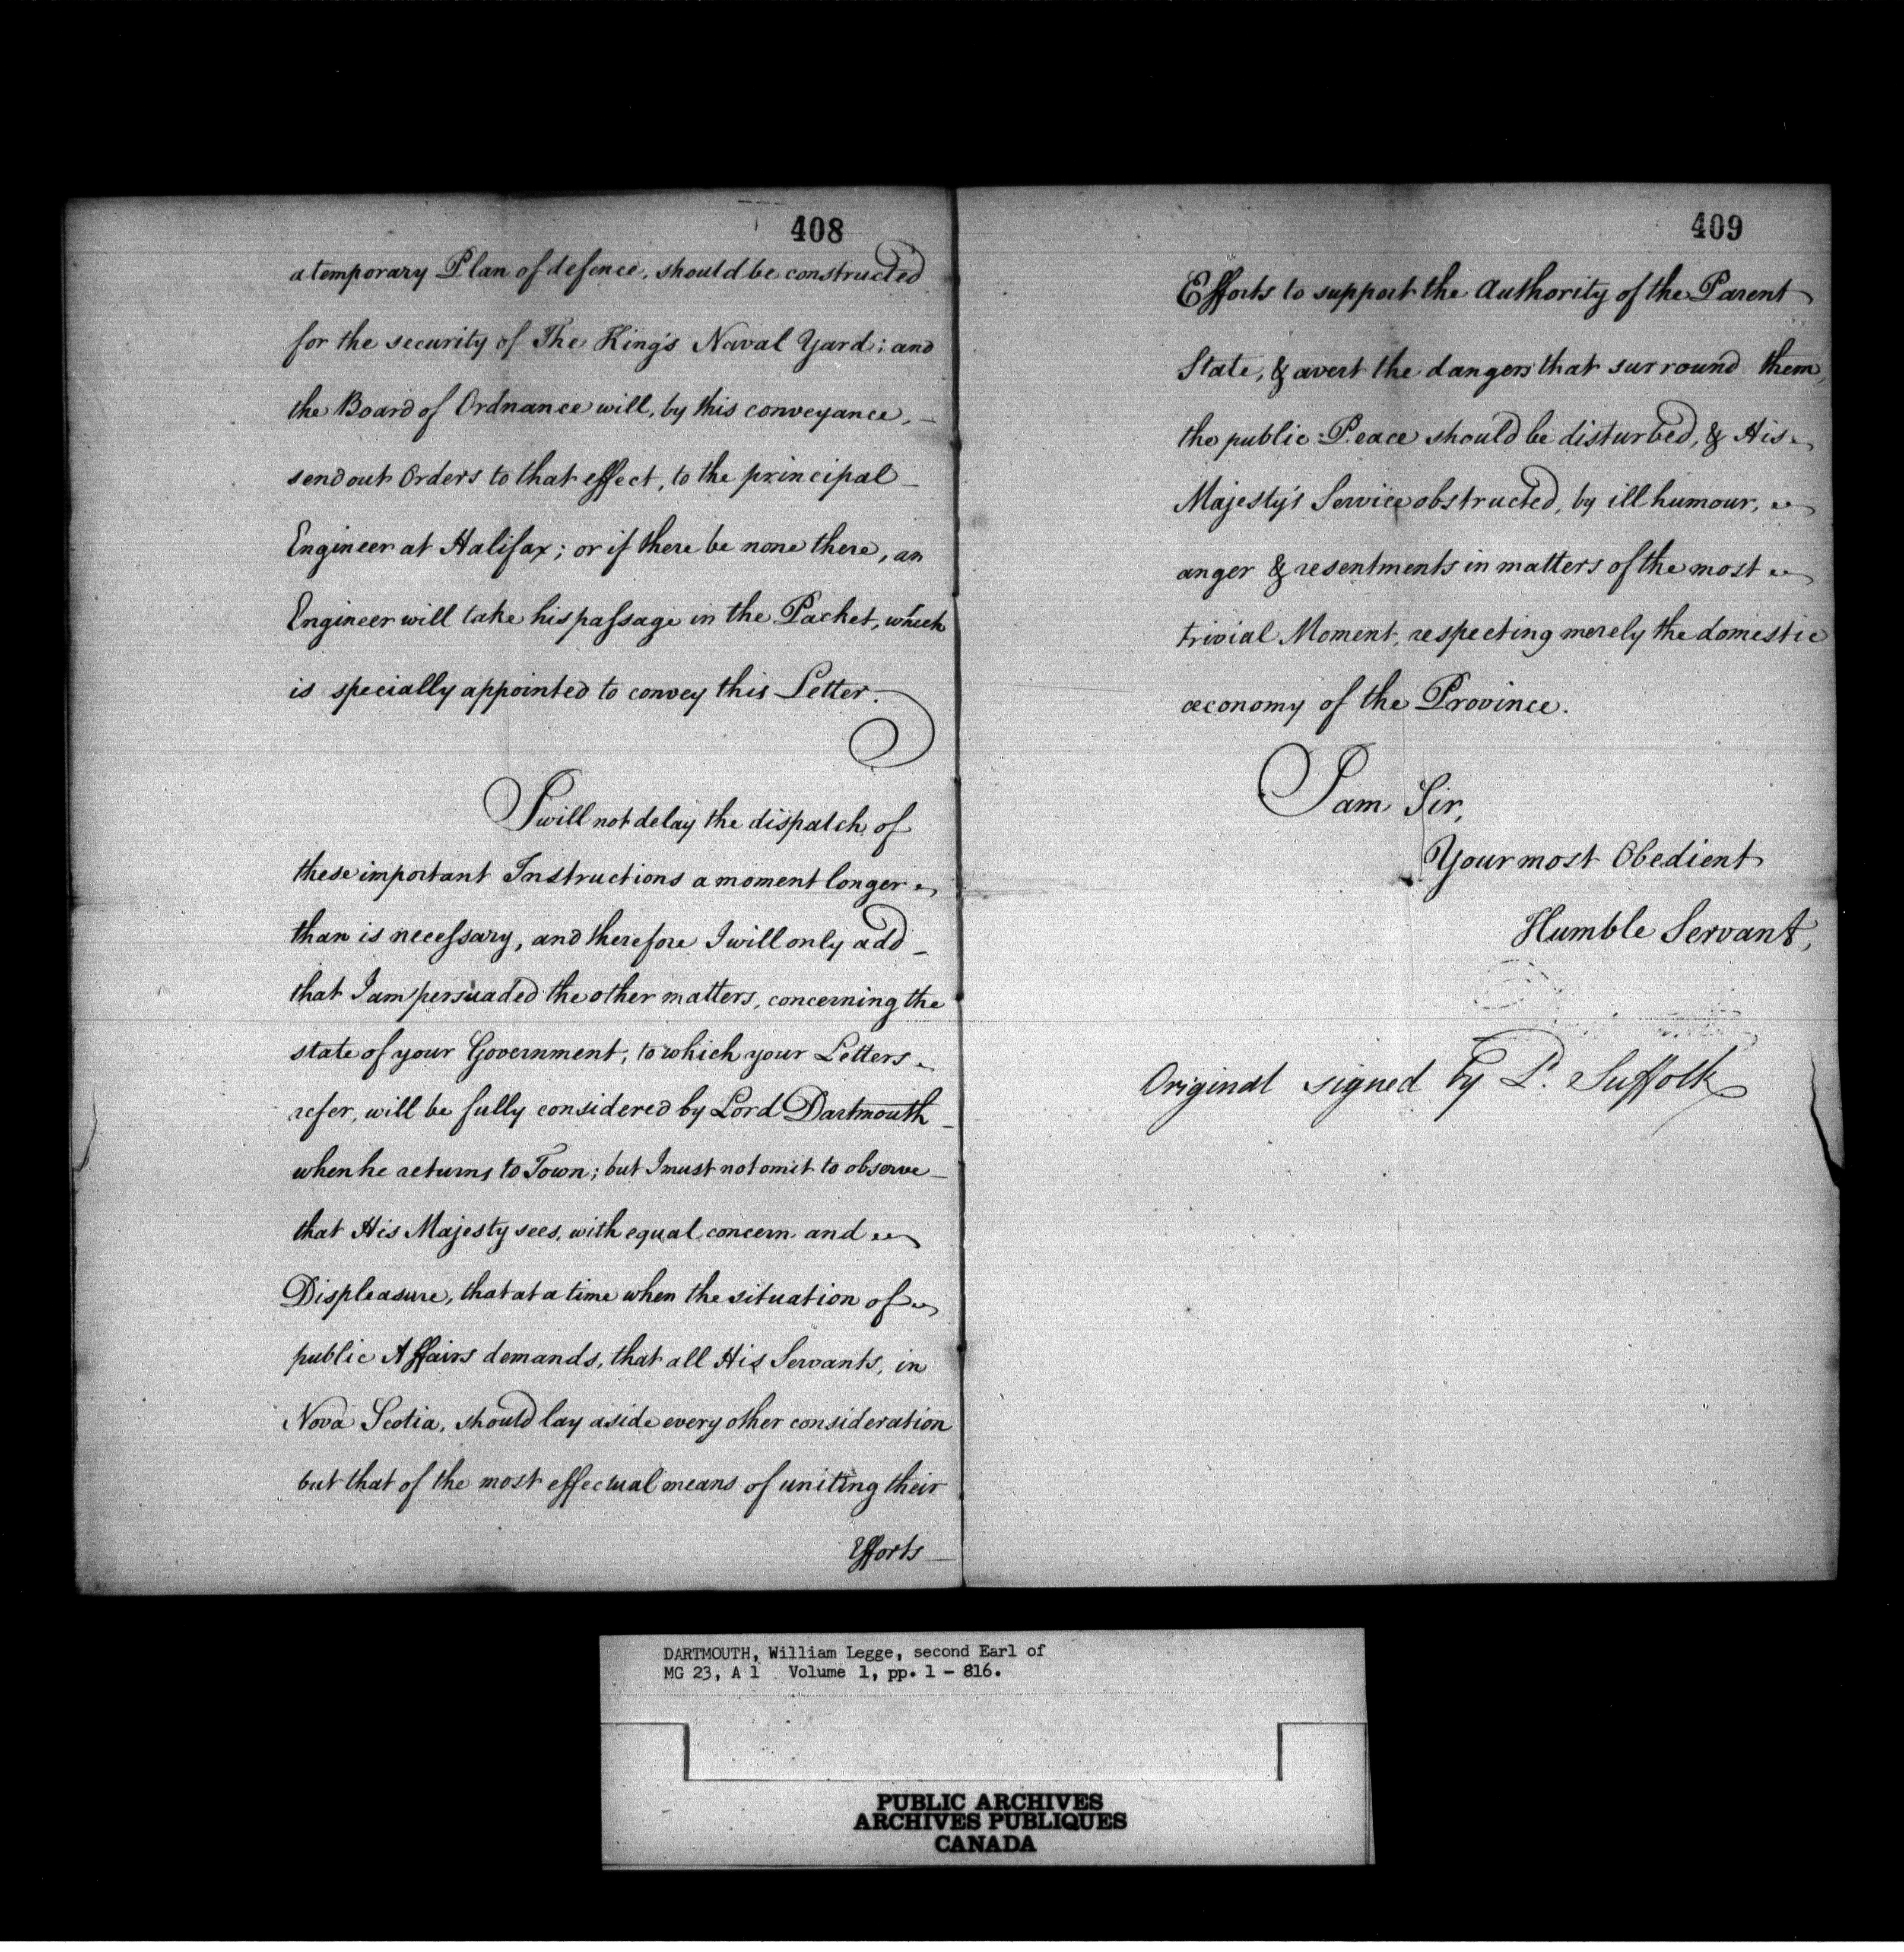 408
a temporary Plan of defence, should be constructed
for the security of The King's Naval Yard; and
the Board of Ordnance will, by this conveyance,
send out Orders to that effect, to the principal
Engineer at Halifax; or if there be none there, an
Engineer will take his passage in the Packet, which
is specially appointed to convey this Letter.
I will not delay the dispatch of
these important Instructions a moment longer
than is necessary, and therefore I will only add
that I am persuaded the other matters, concerning the
state of your Government, to which your Letters
refer, will be fully considered by Lord Dartmouth
when he returns to Town; but I must not omit to observe
that His Majesty sees, with equal concern and
Displeasure, that at a time when the situation of
public Affairs demands, that all His Servants, in
Nova Scotia, should lay aside every other consideration
but that of the most effectual means of uniting their
Efforts
409
Efforts to support the Authority of the Parent
State, & avert the dangers that surround them,
the public Peace should be disturbed, & His
Majesty's Service obstructed, by ill humour,
anger & resentments in matters of the most
trivial Moment, respecting merely the domestic
œconomy of the Province.
I am Sir,
Your most Obedient
Humble Servant,
Original signed by Ld. Suffolk
DARTMOUTH, William Legge, second Earl of
MG 23, A 1 Volume 1, pp. 1 - 816.
PUBLIC ARCHIVES
ARCHIVES PUBLIQUES
CANADA